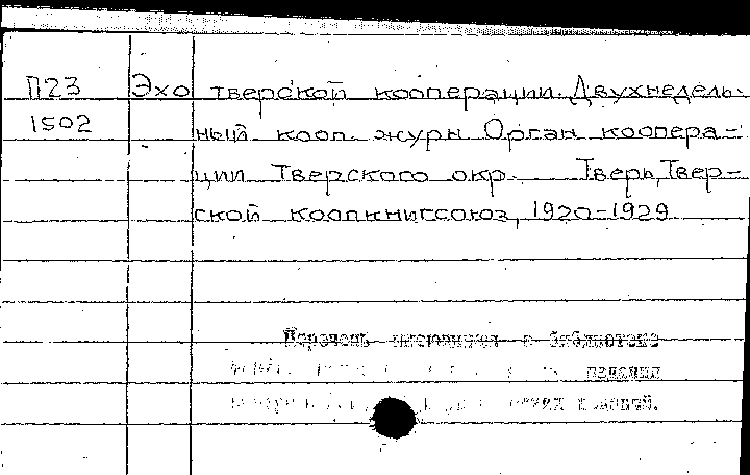 П23 Эхо тверской кооперации. Двухнедель-
1502 ный кооп. журн. Орган коопера-
ции Тверского окр. Тверь, Твер-
ской коопкнигсоюз, 1920-1929
Перечень имеющихся в библиотеке
издания